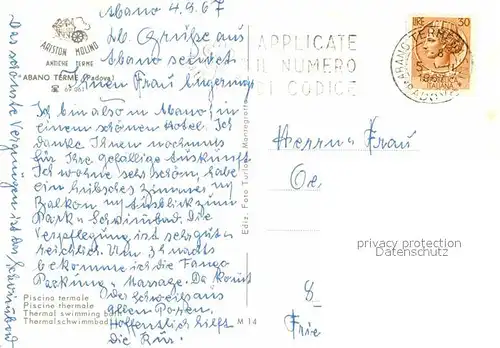 Abano 4.9.67
lb. Grüße aus
Abano sendet
Ihnen Frau
ARISTON MOLINO
ANTICHE TERME
ABANO TERME (Padova)
☎ 69 061
Ich bin also in Abano, in
einem schönen Hotel. Ich
danke Ihnen nochmals
für Ihre gefällige Auskunft.
Ich wohne sehr schön, habe
ein hübsches Zimmer m/
Balkon m/ Ausblick zum
Park u. Schwimbad. Die
Verpflegung ist sehr gut u.
reichlich. Um 3 h nachts
bekomme ich die Fango-
Packung u. Massage. Da komt
der Schweiß aus
allen Poren.
Hoffentlich hilft
die Kur.
Das schönste Vergnügen ist das Schwimbad
Piscino termale
Piscine thermale
Thermal swimming bath
Thermalschwimmbad
M 14
Ediz. Foto Turismo Montegrotto
APPLICATE
IL NUMERO
DI CODICE
ABANO TERME
PADOVA
LIRE 30
ITALIANA
Herrn u. Frau
Oe.
8
Frie
privacy protection
Datenschutz